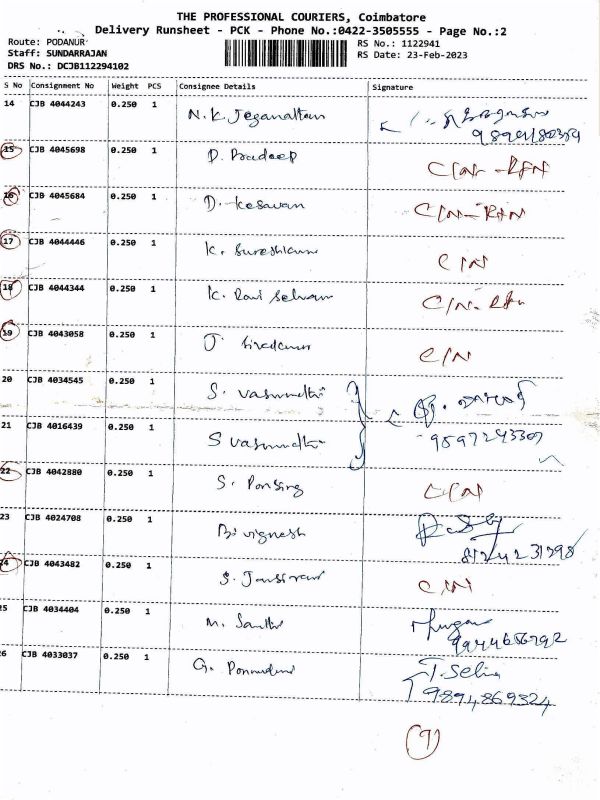 THE PROFESSIONAL COURIERS, Coimbatore
Delivery Runsheet - PCK - Phone No.:0422-3505555 - Page No.:2
Route: PODANUR RS No.: 1122941
Staff: SUNDARRAJAN RS Date: 23-Feb-2023
DRS No.: DCJB112294102
S No Consignment No Weight PCS Consignee Details Signature
14 CJB 4044243 0.250 1 N.K. Jeganathan
15 CJB 4045698 0.250 1 D. Pradeep C/N-RTN
16 CJB 4045684 0.250 1 D. Kesavan C/N-RTN
17 CJB 4044446 0.250 1 K. C/N
18 CJB 4044344 0.250 1 K. Ravi Selvam C/N-RTN
19 CJB 4043058 0.250 1 J. C/N
20 CJB 4034545 0.250 1 S. Vasumathi
21 CJB 4016439 0.250 1 S Vasumathi
22 CJB 4042880 0.250 1 S. Ponsing C/N
23 CJB 4024708 0.250 1 B. vignesh
8124231298
24 CJB 4043482 0.250 1 S. C/N
25 CJB 4034404 0.250 1 M. Santhi
9944656792
26 CJB 4033037 0.250 1 G. T. Selvi
9894869324
(9)